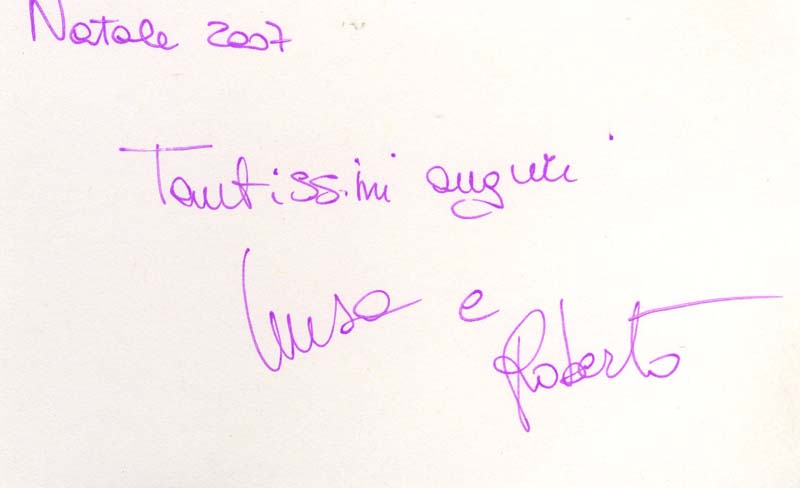 Natale 2007
Tantissimi auguri
Luisa e
Roberto